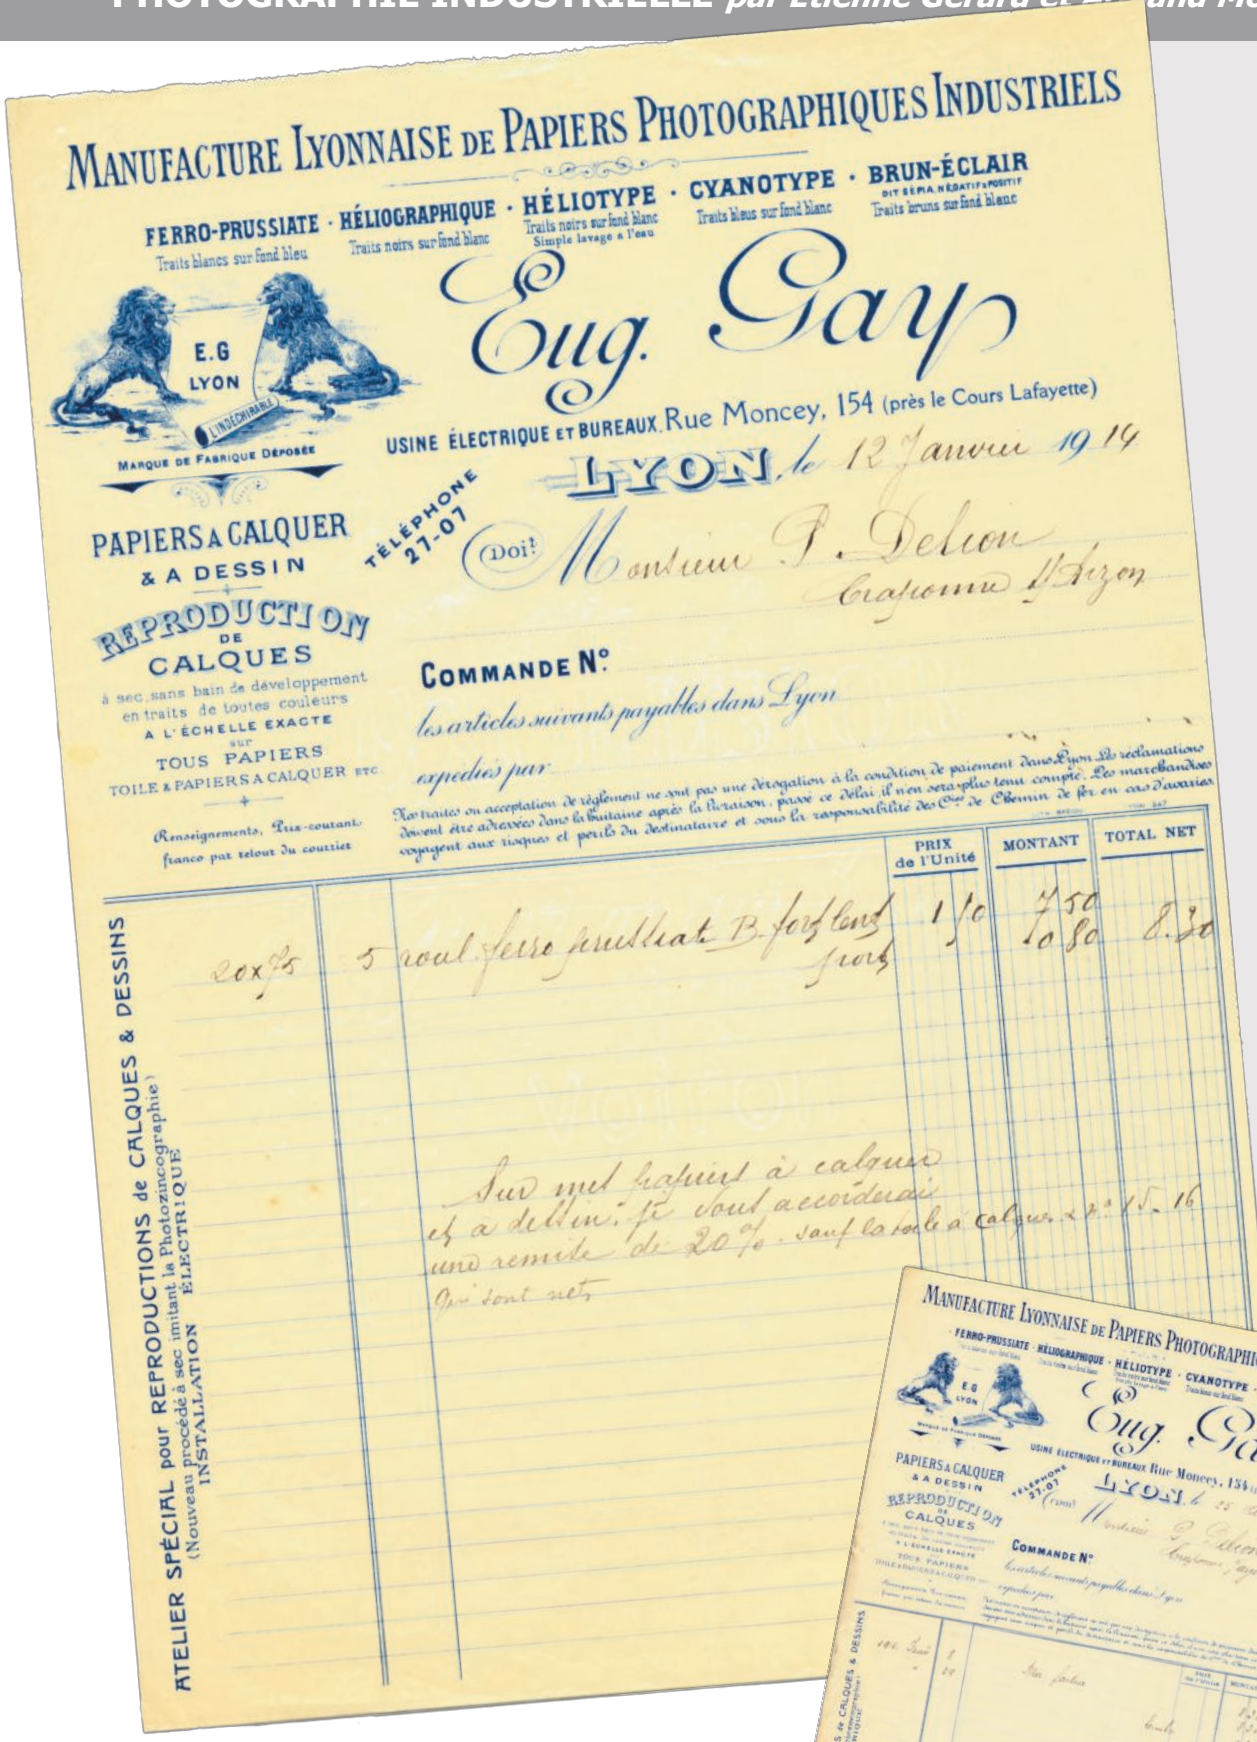 PHOTOGRAPHIE INDUSTRIELLE par Etienne Gérard et
MANUFACTURE LYONNAISE DE PAPIERS PHOTOGRAPHIQUES INDUSTRIELS
FERRO-PRUSSIATE · HÉLIOGRAPHIQUE · HÉLIOTYPE · CYANOTYPE · BRUN-ÉCLAIR
Traits blancs sur fond bleu
Traits noirs sur fond blanc
Traits noirs sur fond blanc
Simple lavage a l'eau
Traits bleus sur fond blanc
DIT SÉPIA, NÉGATIF & POSITIF
Traits bruns sur fond blanc
Eug. Gay
E.G
LYON
L'INDÉCHIRABLE
MARQUE DE FABRIQUE DÉPOSÉE
USINE ÉLECTRIQUE ET BUREAUX, Rue Moncey, 154 (près le Cours Lafayette)
LYON, le 12 Janvier 1914
TÉLÉPHONE
27-07
Doit Monsieur P. Delion
Craponne s/ Arzon
PAPIERS A CALQUER
& A DESSIN
REPRODUCTION
DE
CALQUES
à sec, sans bain de développement
en traits de toutes couleurs
A L'ÉCHELLE EXACTE
sur
TOUS PAPIERS
TOILE & PAPIERS A CALQUER ETC
Renseignements, Prix-courant
franco par retour du courrier
COMMANDE N°
les articles suivants payables dans Lyon
expédiés par
Nos traites ou acceptation de règlement ne sont pas une dérogation à la condition de paiement dans Lyon. Les réclamations
doivent être adressées dans la huitaine après la livraison, passé ce délai, il n'en sera plus tenu compte. Les marchandises
voyagent aux risques et perils du destinataire et sous la responsabilité des Cies de Chemin de fer en cas d'avaries.
PRIX
de l'Unité
MONTANT
TOTAL NET
20x75 5 roul. ferro prussiate B fort lent 1 50 7 50
port 0 80 8.30
Sur mes papiers à calquer
et a dessin, je vous accorderai
une remise de 20% sauf la toile à calquer & Nos 15. 16
qui sont nets
ATELIER SPÉCIAL pour REPRODUCTIONS de CALQUES & DESSINS
(Nouveau procédé à sec imitant la Photozincographie)
INSTALLATION ÉLECTRIQUE
MANUFACTURE LYONNAISE DE PAPIERS
FERRO-PRUSSIATE · HÉLIOGRAPHIQUE · HÉLIOTYPE · CYANOTYPE ·
Eug.
E.G
LYON
MARQUE DE FABRIQUE DÉPOSÉE
USINE ÉLECTRIQUE ET BUREAUX Rue Moncey, 154
LYON, le 25
TÉLÉPHONE
27-07
Monsieur P. Delion
PAPIERS A CALQUER
& A DESSIN
REPRODUCTION
DE
CALQUES
A L'ÉCHELLE EXACTE
TOUS PAPIERS
COMMANDE N°
les articles suivants payables dans Lyon
expédiés par
CALQUES & DESSINS